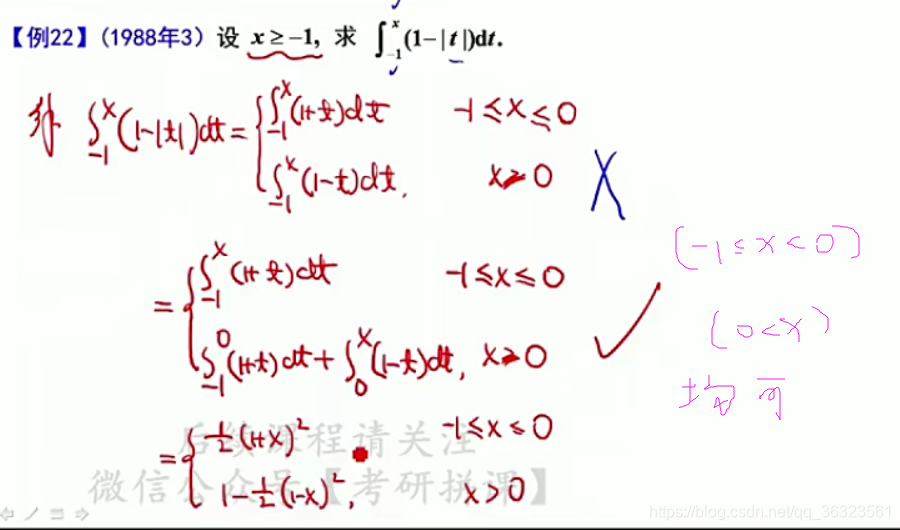 【例22】(1988年3) 设 x ≥ -1, 求 ∫_{-1}^{x} (1-|t|)dt.
解 ∫_{-1}^{x} (1-|t|)dt = { ∫_{-1}^{x} (1+t)dt -1≤x≤0
∫_{-1}^{x} (1-t)dt, x>0 X
(-1≤x<0)
= { ∫_{-1}^{x} (1+t)dt -1≤x≤0
(0<x)
∫_{-1}^{0} (1+t)dt + ∫_{0}^{x} (1-t)dt, x>0 ✓
均可
= { 1/2 (1+x)² -1≤x≤0
1 - 1/2 (1-x)², x>0
后续课程请关注
微信公众号【考研拼课】
https://blog.csdn.net/qq_36323561